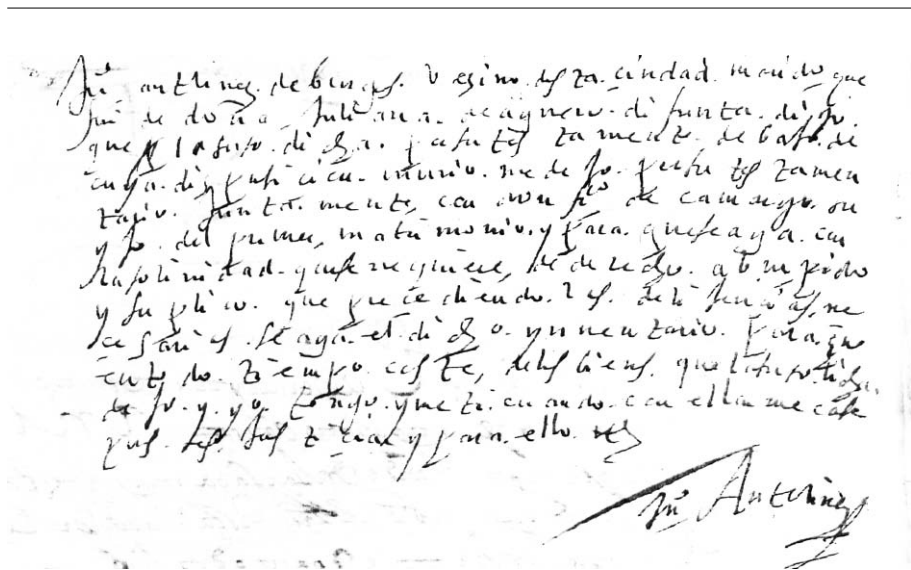 Juº antlines de burgos. Vezino desta ciudad. marido que
fui de doña Juliana de aguero. difunta. digo.
que la susodicha. hiso su testamento. debaxo de
cuya. dispusicion. murio. me dejo. por su testamen
tario. Juntamente, con don frcº de camargo. su
yjo. del primer, matrimonio. y para. que se aya. con
la solenidad. que se requiere, de derecho. a Vm pido
y suplico. que precediendo. las. delijencias, ne
cesarias. se aga. el dicho. ynventario. para. que
en todo. tiempo. coste, de los bienes. que la susodicha.
dejo. y. yo. tengo. y meti. cuando. con ella me case
pues. es. justicia y para. ello. etc
Juº Antolinez